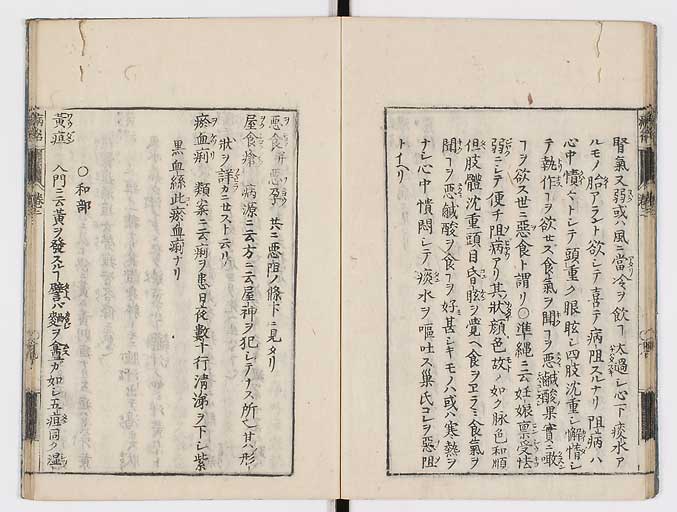 腎氣又弱或ハ風ニ當冷ヲ飲ヿ太過レ心下痰水ア
ルモノ胎アラント欲シテ喜テ病阻スルナリ阻病ハ
心中憒々トシテ頭重ク眼眩シ四肢沈重シ懈惰シ
テ執作ヿヲ欲セス食氣ヲ聞ヿヲ惡鹹酸果實ニ噉
ヿヲ欲ス世ニ惡食ト謂リ〇準繩ニ云妊娠禀受怯
弱ニシテ便チ阻病アリ其狀顔色故ノ如ク脉色和順
但肢體沈重頭目昏眩ヲ覺ヘ食ヲヱラミ食氣ヲ
聞ヿヲ惡鹹酸ヲ食ヿヲ好甚シキモノハ或ハ寒熱ヲ
ナシ心中憒悶シテ痰水ヲ嘔吐ス巢氏コレヲ惡阻
トイヘリ
惡食 惡孕 共ニ惡阻ノ條下ニ見タリ
屋食瘮 病源ニ云方ニ云屋神ヲ犯シテナス所也其ノ形
狀ヲ詳カニセスト云リ
瘀血痢 類案ニ云痢ヲ患日夜數十行清涕ヲ下シ紫
黑血絲此瘀血痢ナリ
〇和部
黃疸 入門ニ云黃ヲ發スルヿ譬ハ麯ヲ盦カ如シ五疸同ク濕